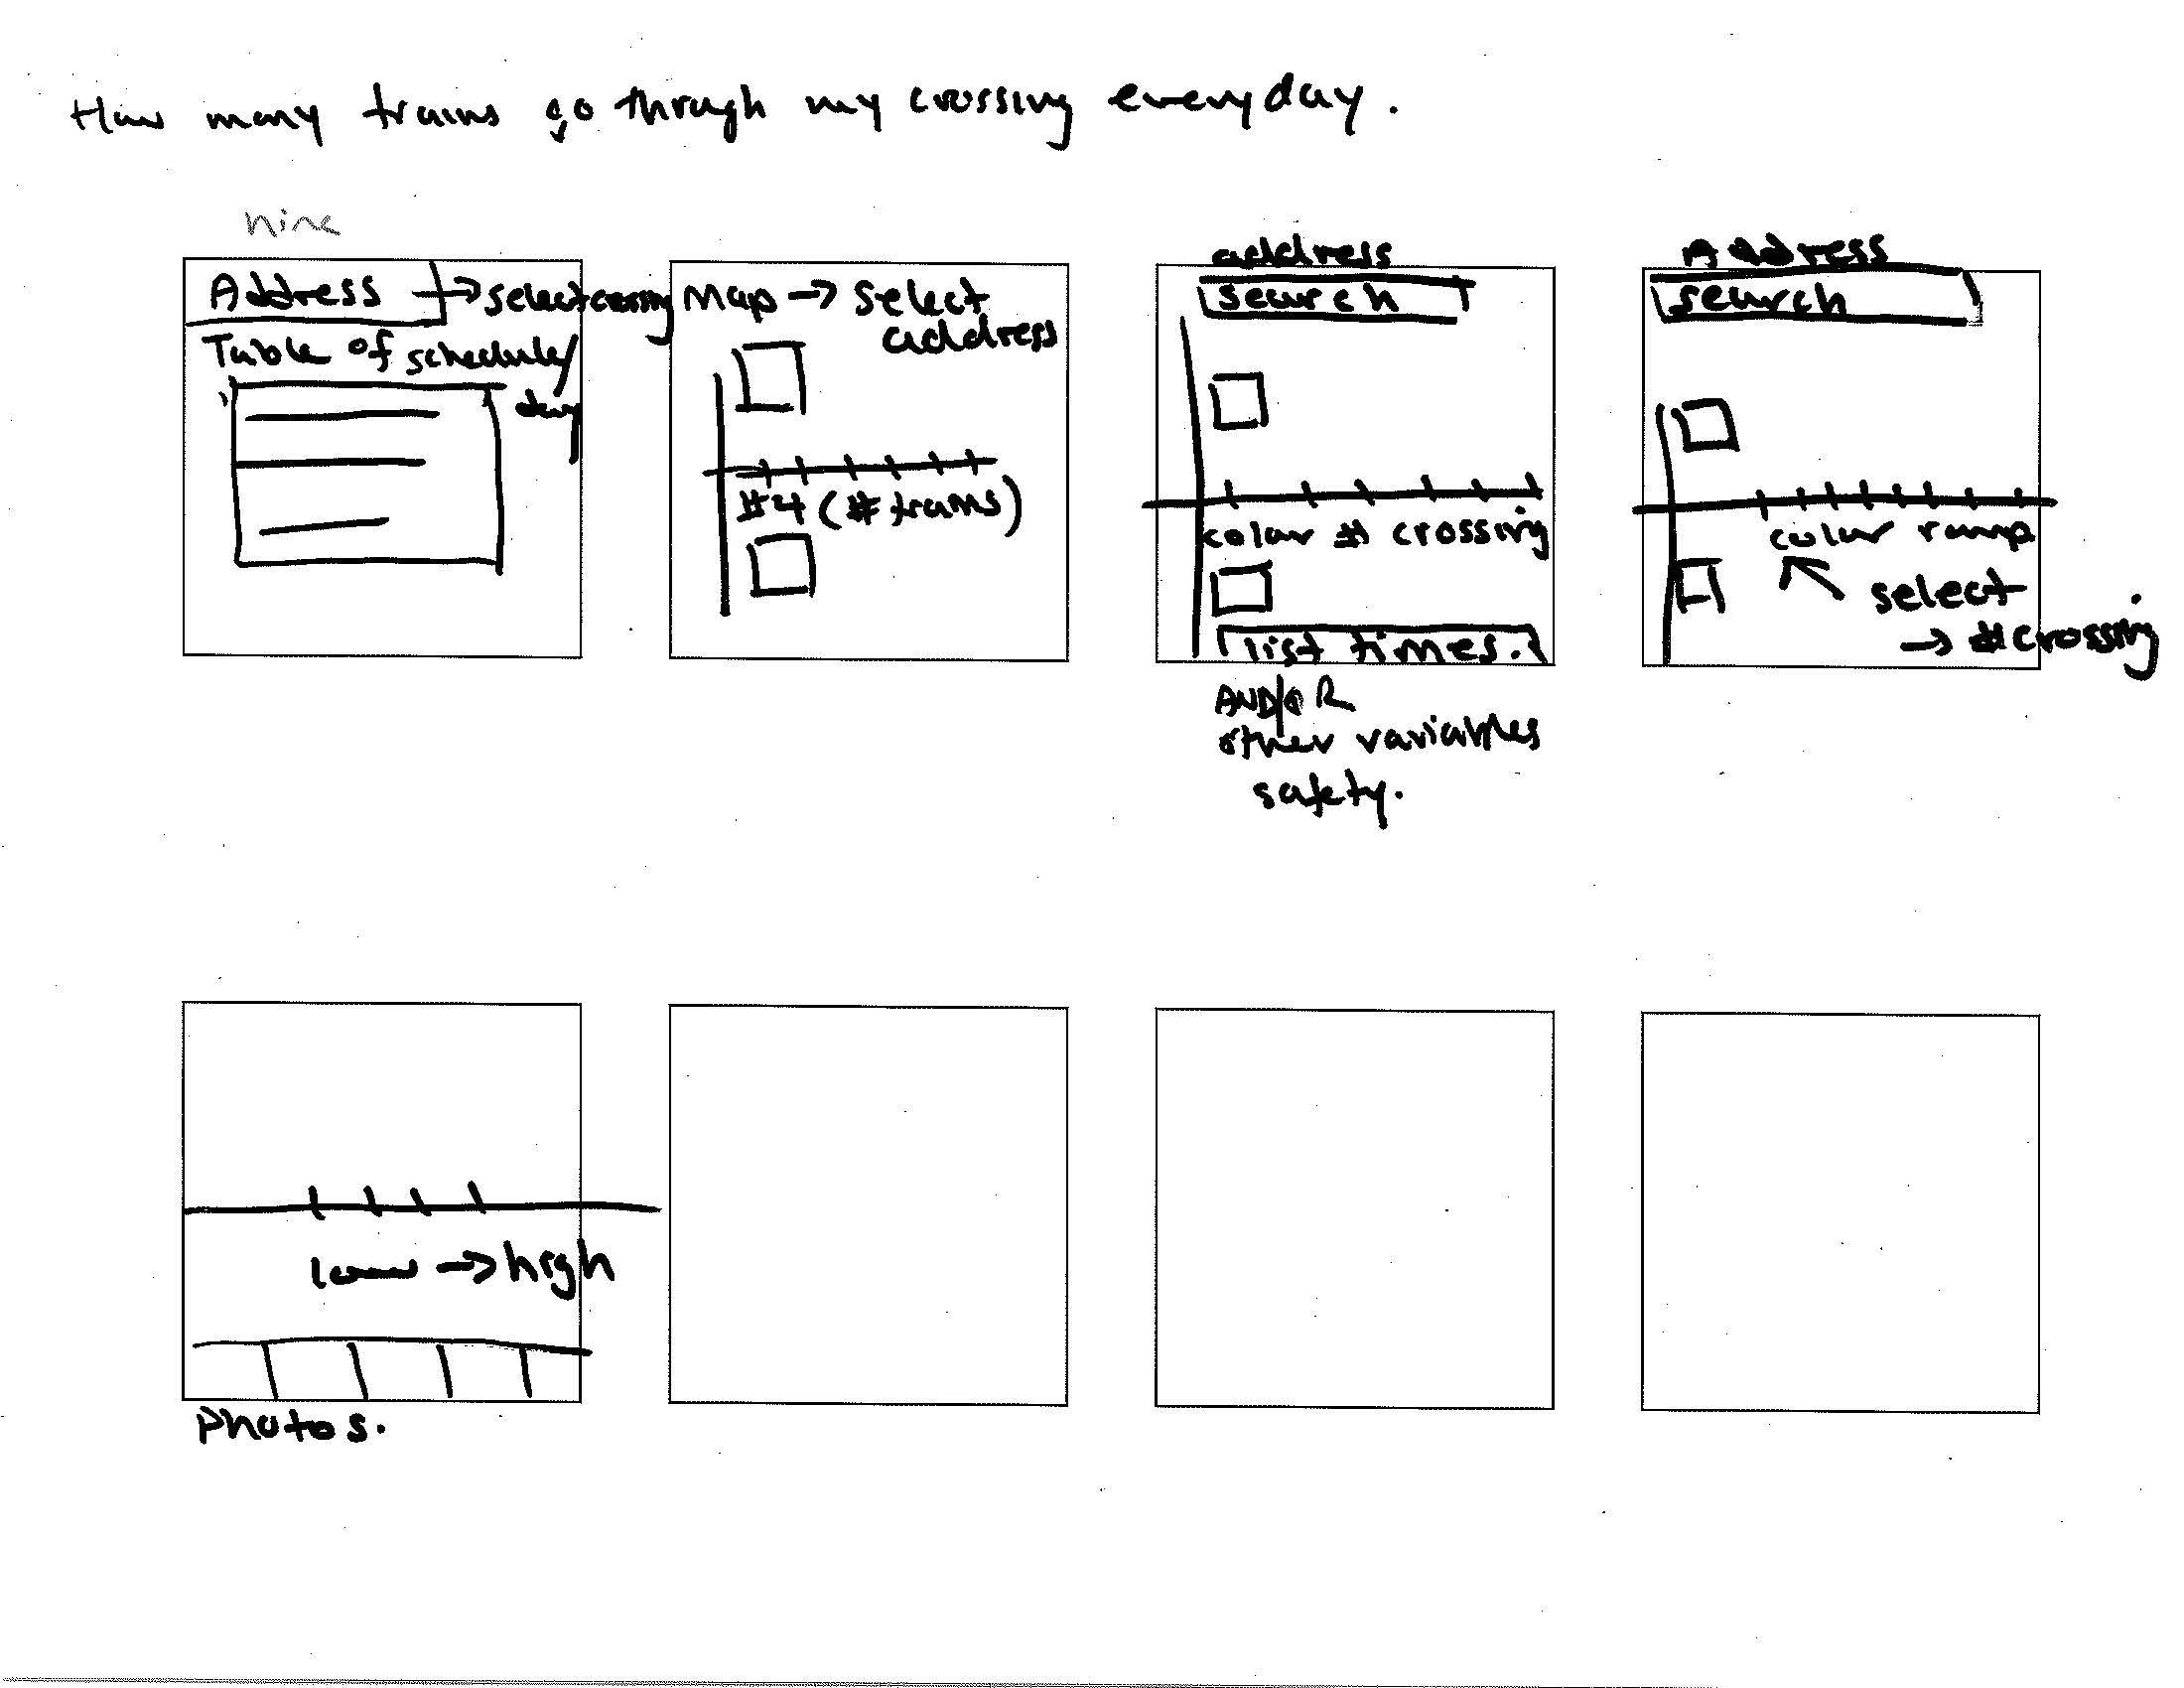 How many trains go through my crossing everyday.
nine
Address → select crossing
Table of schedule/
day
Map → select
address
#4 (# trains)
address
search
color # crossing
list times.
AND/OR
other variables
safety.
Address
search
color ramp
select
→ # crossing
low → high
Photos.